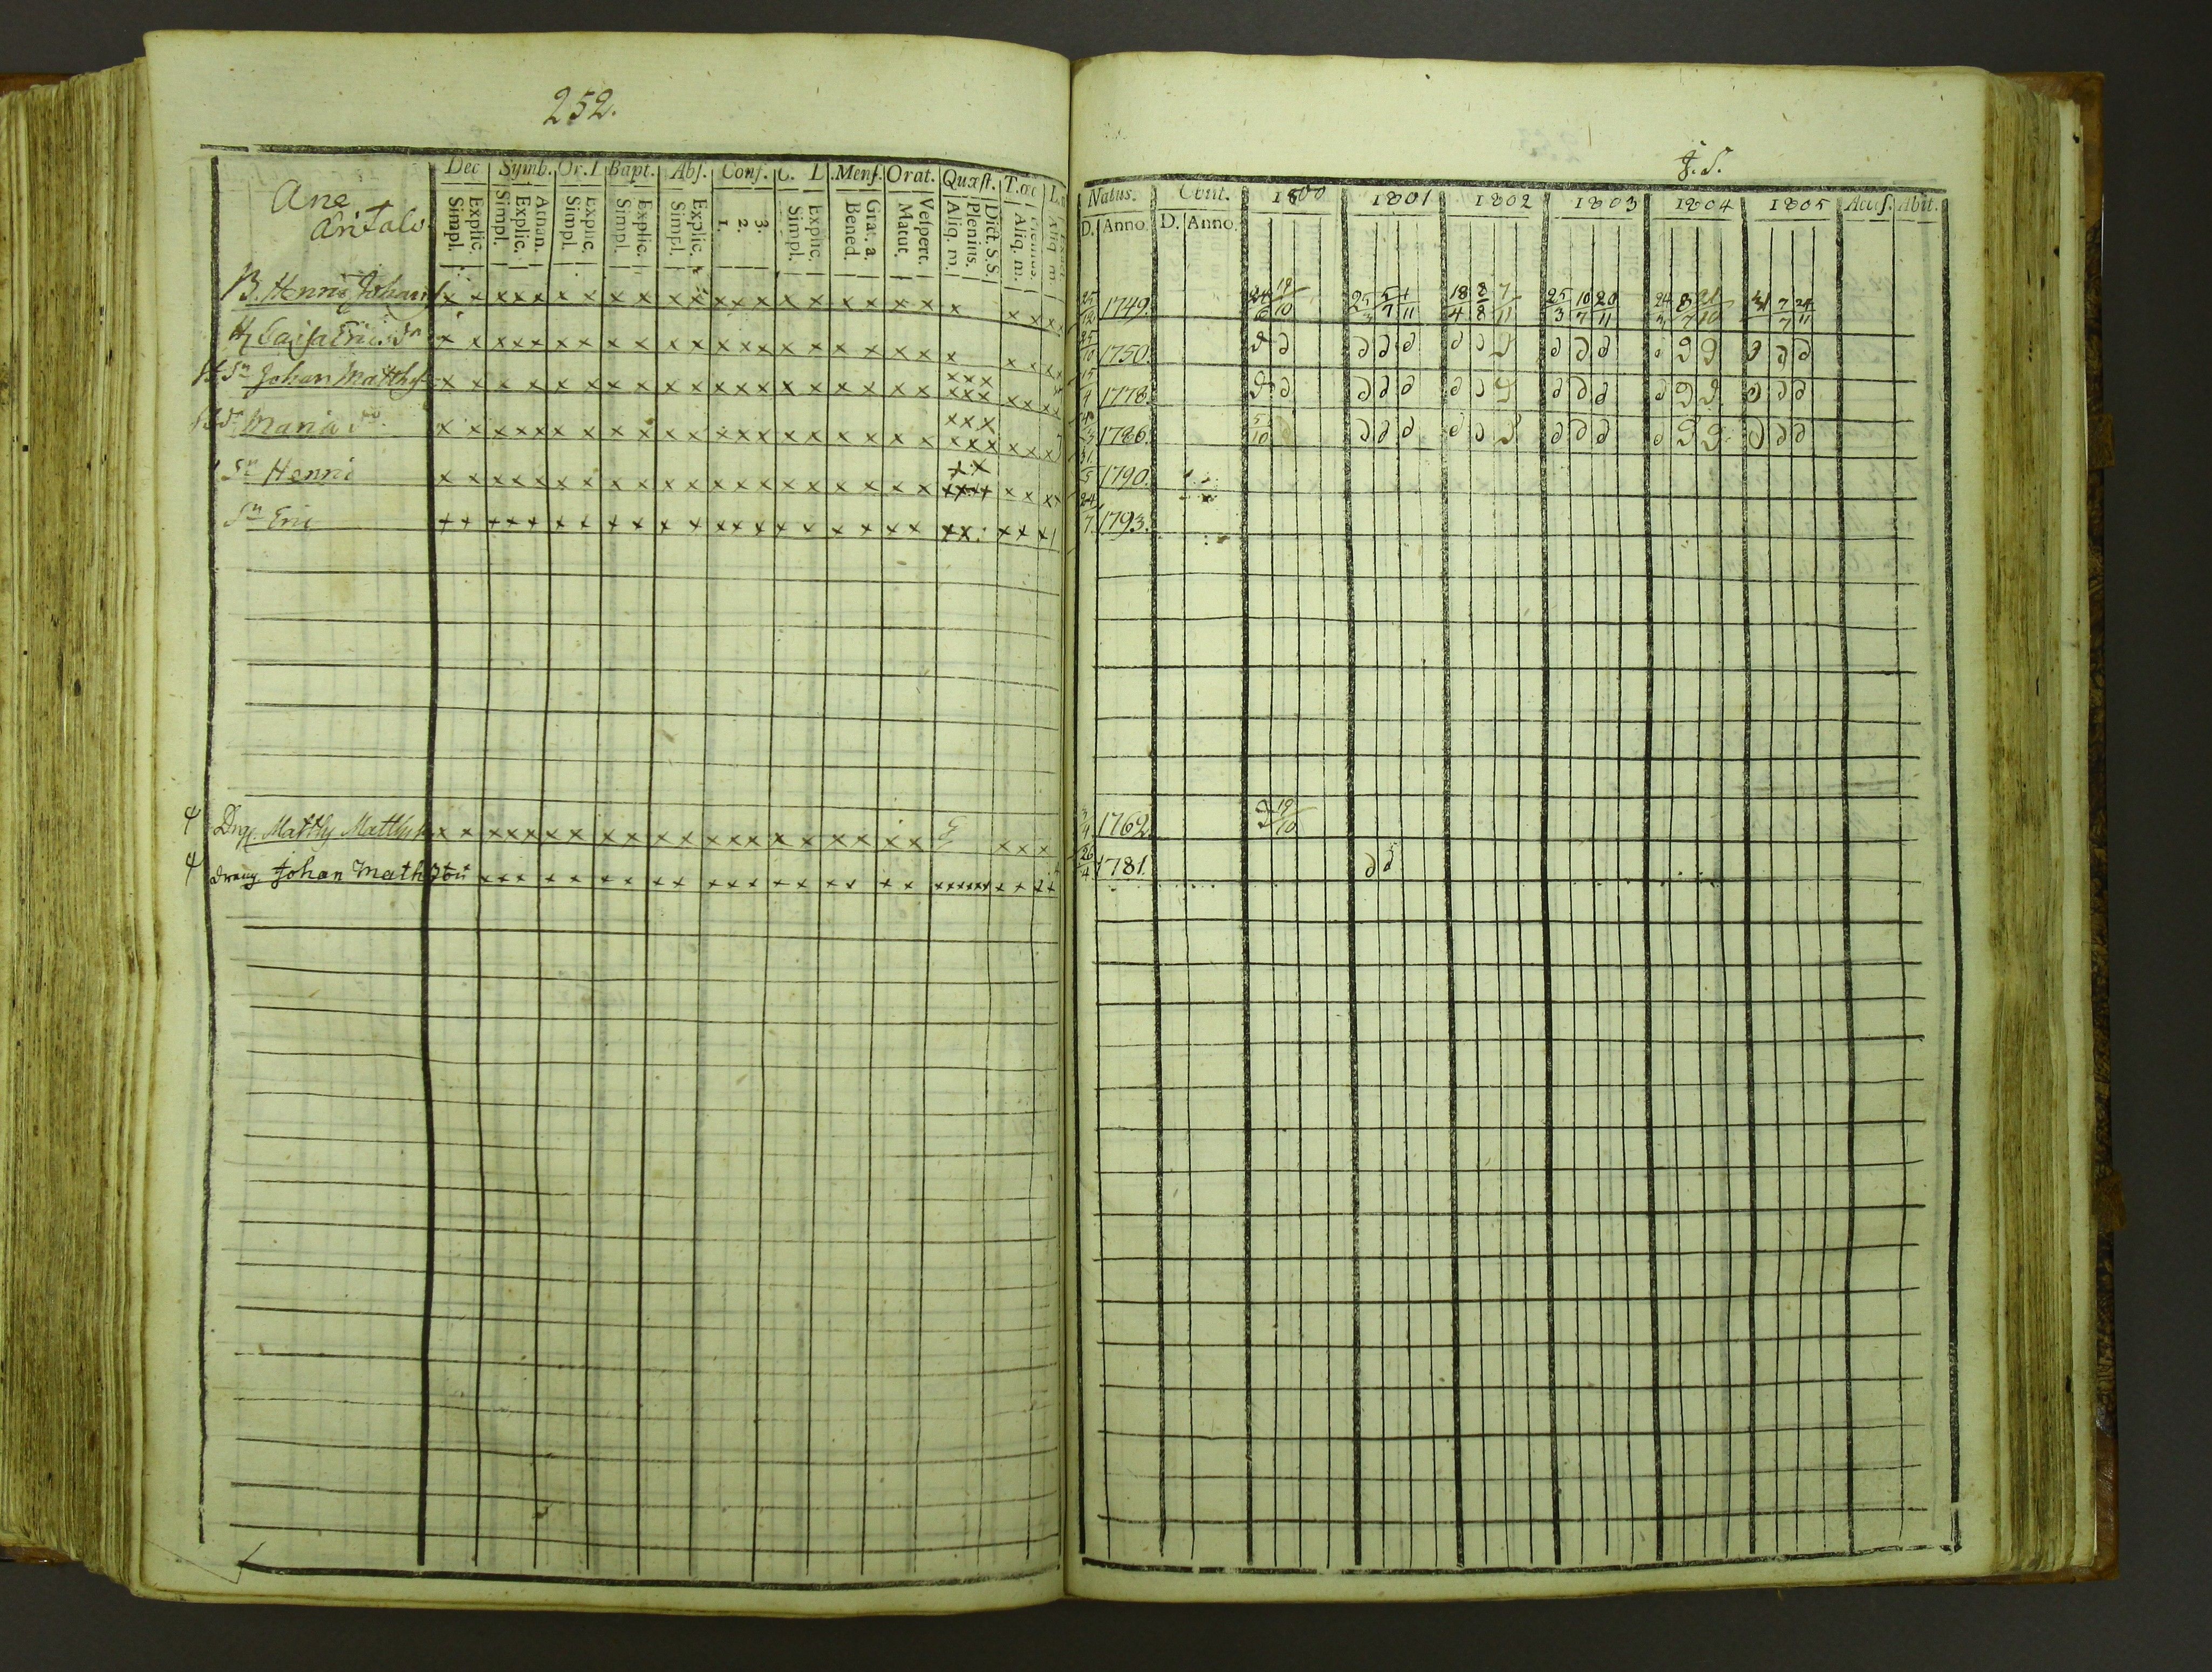 252.
J.S.
Dec Symb. Or. I Bapt. Abs. Conf. C. L. Mens. Orat. Quæst. T. œc
Natus. Cont. 1800 1801 1802 1803 1804 1805 Accus. Abit.
Ane
Anitalo
Explic. Simpl. Athan. Explic. Simpl. Explic. Simpl. Explic. Simpl. Explic. Simpl. 3. 2. 1. Explic. Simpl. Grat. a. Bened. Vespert. Matut. Dict. S.S. Plenius. Aliq. m. Plenius. Aliq. m. Aliq. m.
D. Anno. D. Anno.
B. Henric Johans x x x x x x x x x x x x x x x x x x x x x x x x x 25/12 1749. 24/6 19/10 25/3 5/7 1/11 18/4 8/8 7/11 25/3 10/7 20/11 24/3 8/7 21/10 7/7 24/11
H Caisa Eric. Dr x x x x x x x x x x x x x x x x x x x x x x x x x 25/10 1750. ∂ ∂ ∂ ∂ ∂ ∂ ∂ ∂ ∂ ∂ ∂ ∂ ∂ ∂ ∂ ∂ ∂
Sn Johan Matths x x x x x x x x x x x x x x x x x x x x x x x x x x x 15/4 1778. ∂ ∂ ∂ ∂ ∂ ∂ ∂ ∂ ∂ ∂ ∂ ∂ ∂ ∂ ∂ ∂ ∂
Dr Maria x x x x x x x x x x x x x x x x x x x x x x x x x x x 1786. 5/10 ∂ ∂ ∂ ∂ ∂ ∂ ∂ ∂ ∂ ∂ ∂ ∂ ∂ ∂ ∂
Sn Henric x x x x x x x x x x x x x x x x x x x x x x x x x x 31/5 1790.
Sn Eric x x x x x x x x x x x x x x x x x x x x x x x x x 24/7 1793.
4 Drg. Matths Matthss x x x x x x x x x x x x x x x x x x x x x x x x 3/4 1762. ∂ 19/10
4 dräng Johan Math x x x x x x x x x x x x x x x x x x x x x x x x x x 26/4 1781. ∂ ∂